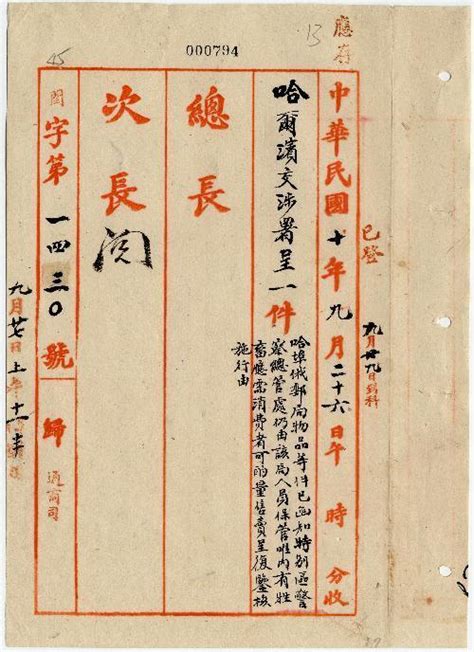 000794
13
應存
中華民國十年九月二十六日午 時 分收
已登
九月廿九日到科
哈爾濱交涉署呈一件
哈埠俄郵局物品等件已函知特別區警
察總管處仍由該局人員保管唯內有牲
畜應需消費者可酌量售賣呈復鑒核
施行由
總長
次長 閱
45
閏字第一四三〇號 歸 通商司
九月廿七日上午十一